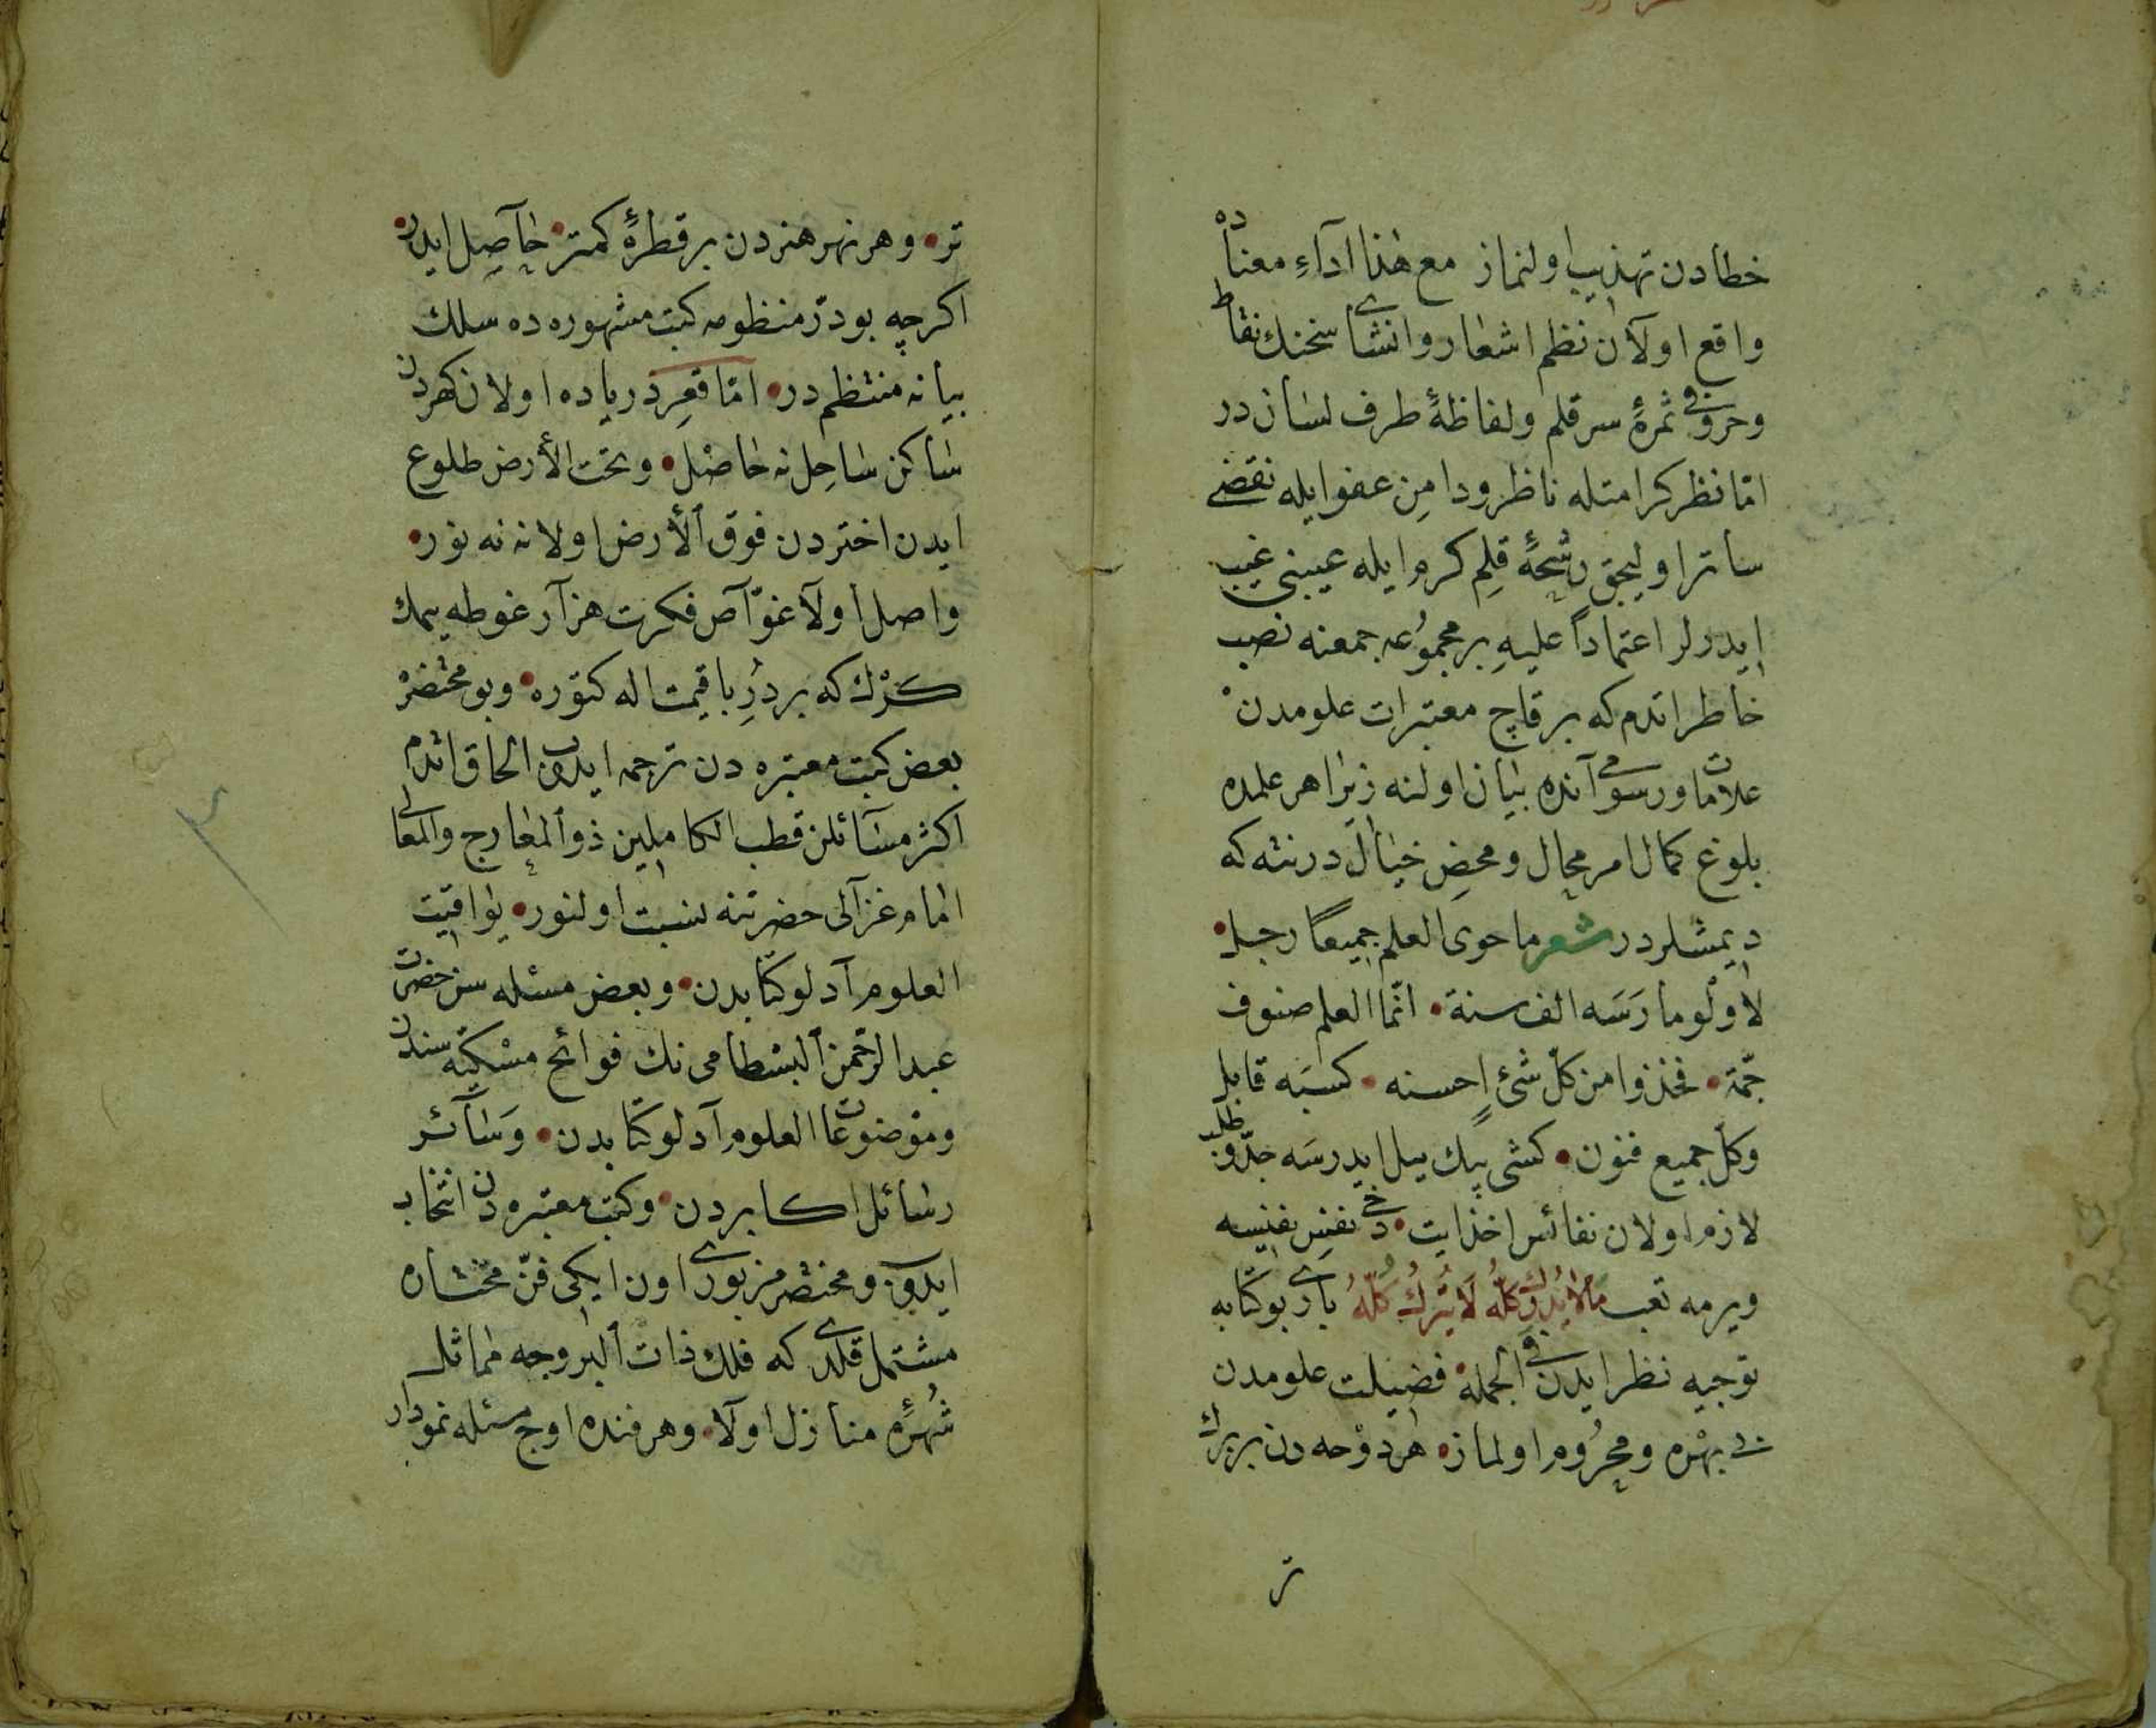 خطادن تهذيب اولنماز مع هذا آداءِ معناده
واقع اولآن نظم اشعار و انشاى سخنك نقاط
و حروفى ثمرۀ سر قلم و لفاظۀ طرف لسان در
امّا نظر كرامتله ناظر و دامن عفو ايله نقضى
ساتر اوليجق رشحۀ قلمِ كرم ايله عيبنى غيب
ايدرلر اعتماداً عليهِ بر مجموعه جمعنه نصب
خاطر اتدم كه بر قاچ معتبرات علومدن
علامات و رسومى آنده بيان اولنه زيرا هر علمده
بلوغ كمال امر محال و محضِ خيال در نته كه
ديمشلردر شعر ما حوى العلم جميعًا رجل
لا ولو مارَسَه الف سنة • انّما العلم صنوف
جمّة • فخذوا من كلّ شئٍ احسنه • كسبَه قابل
وكل جميع فنون • كشى پيك ييل ايدرسَه جدّ و طلب
لازم اولان نفائس اخذ ايت • دخى نفسِ نفيسه
ويرمه تعب مالا يُدرك كلّهُ لَا يُترك كُلّهُ بارى بو كتابه
توجيه نظر ايدن فى الجمله فضيلت علومدن
بى بهره و محرُوم اولمازه هر دوْحه دن بر برك
تر
تر • و هر نهر هنردن بر قطرۀ كمتر • حاصِل ايدر •
اكرچه بو درّ منظومه كتب مشهوره ده سلك
بيانه منتظم در • امّا قعرِ درياده اولان كهردن
ساكن ساحِل نه حاصل • و تحت الأرض طلوع
ايدن اختردن فوق الأرض اولانه نه نور •
واصل اولآ غوّآص فكرت هزآر غوطه يمك
كَرْك كه بر دُرِ با قيمت اله كتوره • و بو مختصَرْ
بعض كتب معتبره دن ترجمه ايدوب الحاق اتدم
اكثر مسآئلن قطب الكاملين ذو المعارج والمعالى
امام غزآلى حضرتنه نسبت اولنور • يواقيت
العلوم آدلو كتابدن • و بعض مسئله سن حضرت
عبد الرّحمن البسطامى نك فوائح مسْكيّه سندن
و موضوعات العلوم آدلو كتابدن • وَسَآئر
رسائل اكابردن • و كتب معتبرەدن انتخاب
ايدوب و مختصر مزبورى اون ايكى فنّ مختاره
مشتمل قلدى كه فلك ذات البروجه مماثل
شُهرۀ منازل اولآ • و هر فنده اوچ مسئله نمودار